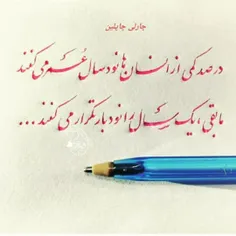 چارلی چاپلین
درصد کمی از انسان ها نود سال عمر می کنند
مابقی، یک سال را نود بار تکرار می کنند ...